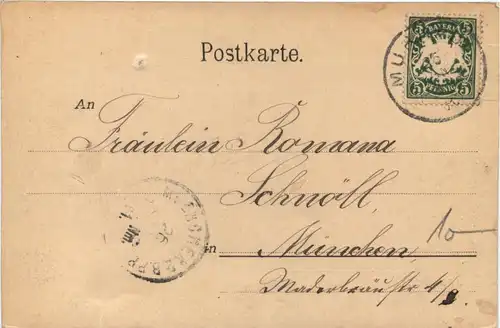 Postkarte.
BAYERN
5 5
PFENNIG
MU
An
Fräulein Romana
Schnöll,
in München,
Maderbräustr 4/3.
10